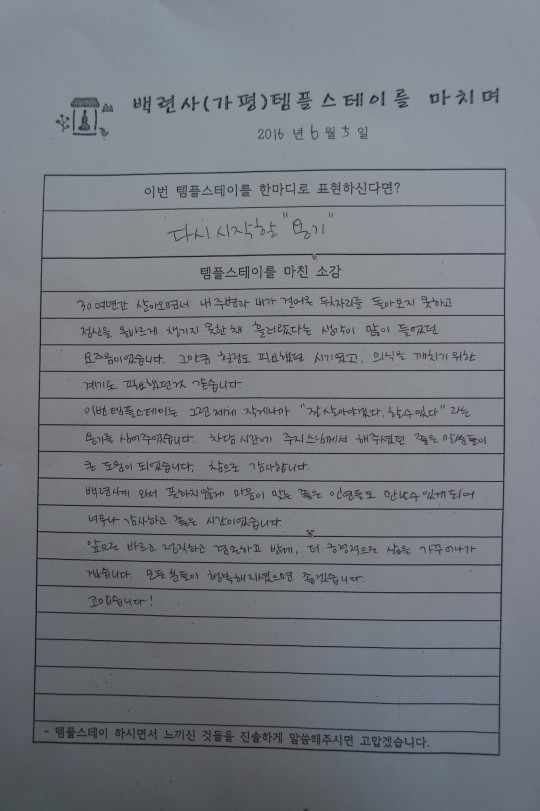 백련사(가평)템플스테이를 마치며
2016 년 6 월 5 일
이번 템플스테이를 한마디로 표현하신다면?
다시 시작할 "용기"
템플스테이를 마친 소감
30여년간 살아오면서 내 주변과 내가 걸어온 뒷자리를 돌아보지 못하고
정신을 올바르게 챙기지 못한채 흘러왔다는 생각이 많이 들었던
요즈음이었습니다. 그만큼 힐링도 필요했던 시기였고, 의식을 깨치기 위한
계기도 필요했던것 같습니다.
이번 템플스테이는 그런 제게 작게나마 "잘 살아야겠다. 할 수 있다" 라는
용기를 심어주었습니다. 차담 시간에 주지스님께서 해주셨던 좋은 말씀들이
큰 도움이 되었습니다. 참으로 감사합니다.
백련사에 와서 뜻하지않게 마음이 맞는 좋은 인연들도 만날수 있게 되어
너무나 감사하고 좋은 시간이었습니다.
앞으로 바르고 정직하고 겸손하고 밝게, 더 긍정적으로 삶을 가꾸어나가
겠습니다. 모든 분들이 행복해지셨으면 좋겠습니다.
고맙습니다!
- 템플스테이 하시면서 느끼신 것들을 진솔하게 말씀해주시면 고맙겠습니다.